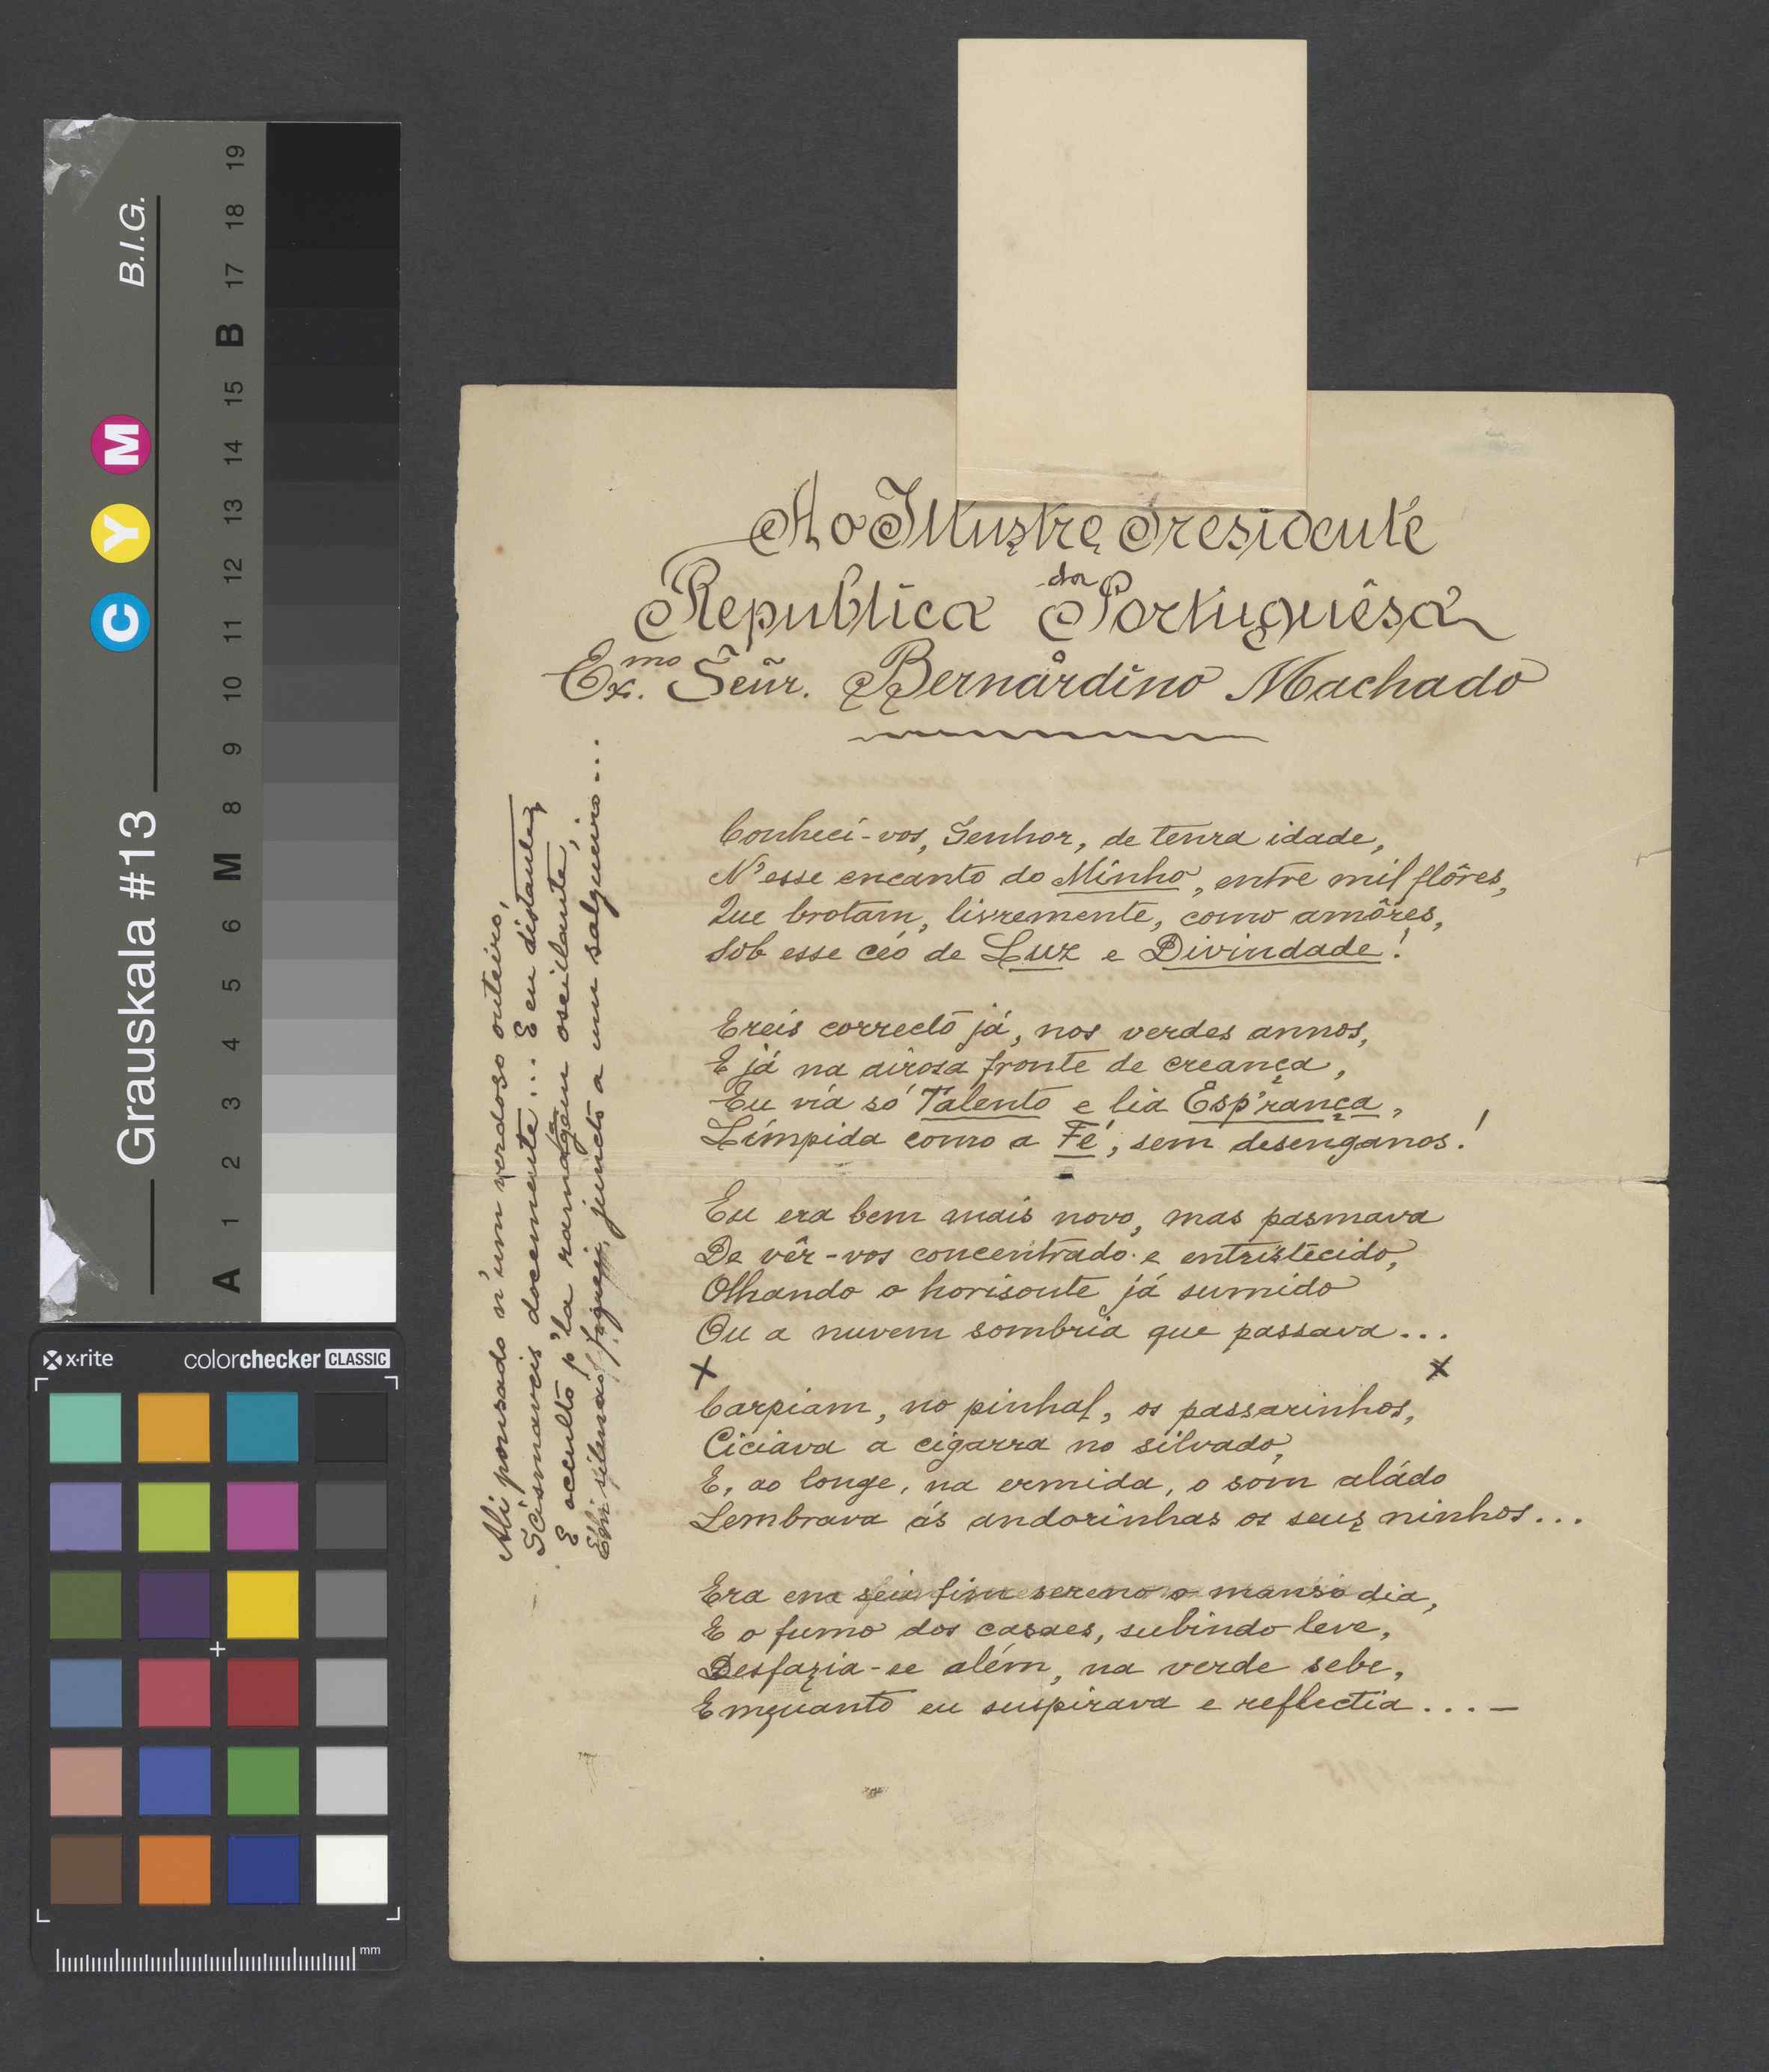 Ao Illustre Presidente
da
Republica Portuguêsa
Ex.mo Señr. Bernardino Machado
Conheci-vos, Senhor, de tenra idade,
N'esse encanto do Minho, entre mil flôres,
Que brotam, livremente, como amôres,
Sob esse céo de Luz e Divindade!
Ereis correcto já, nos verdes annos,
E já na airosa fronte de creança,
Eu via só Talento e lia Esp'rança,
Límpida como a Fé, sem desenganos!
Eu era bem mais novo, mas pasmava
De vêr-vos concentrado e entristecido,
Olhando o horisonte já sumido
Ou a nuvem sombria que passava...
X X
Carpiam, no pinhal, os passarinhos,
Ciciava a cigarra no silvado,
E, ao longe, na ermida, o som aládo
Lembrava ás andorinhas os seus ninhos...
Era em seu fim sereno o manso dia,
E o fumo dos casaes, subindo leve,
Desfazia-se além, na verde sebe,
Emquanto eu suspirava e reflectia... —
Ali pousado n'um verdoso outeiro,
Scismaveis docemente... E eu distante,
E occulto p'la ramagem oscillante,
Em silencio fiquei, juncto a um salgueiro...
Grauskala #13
B.I.G.
C Y M
A 1 2 3 4 5 6 M 8 9 10 11 12 13 14 15 B 17 18 19
x-rite
colorchecker CLASSIC
mm